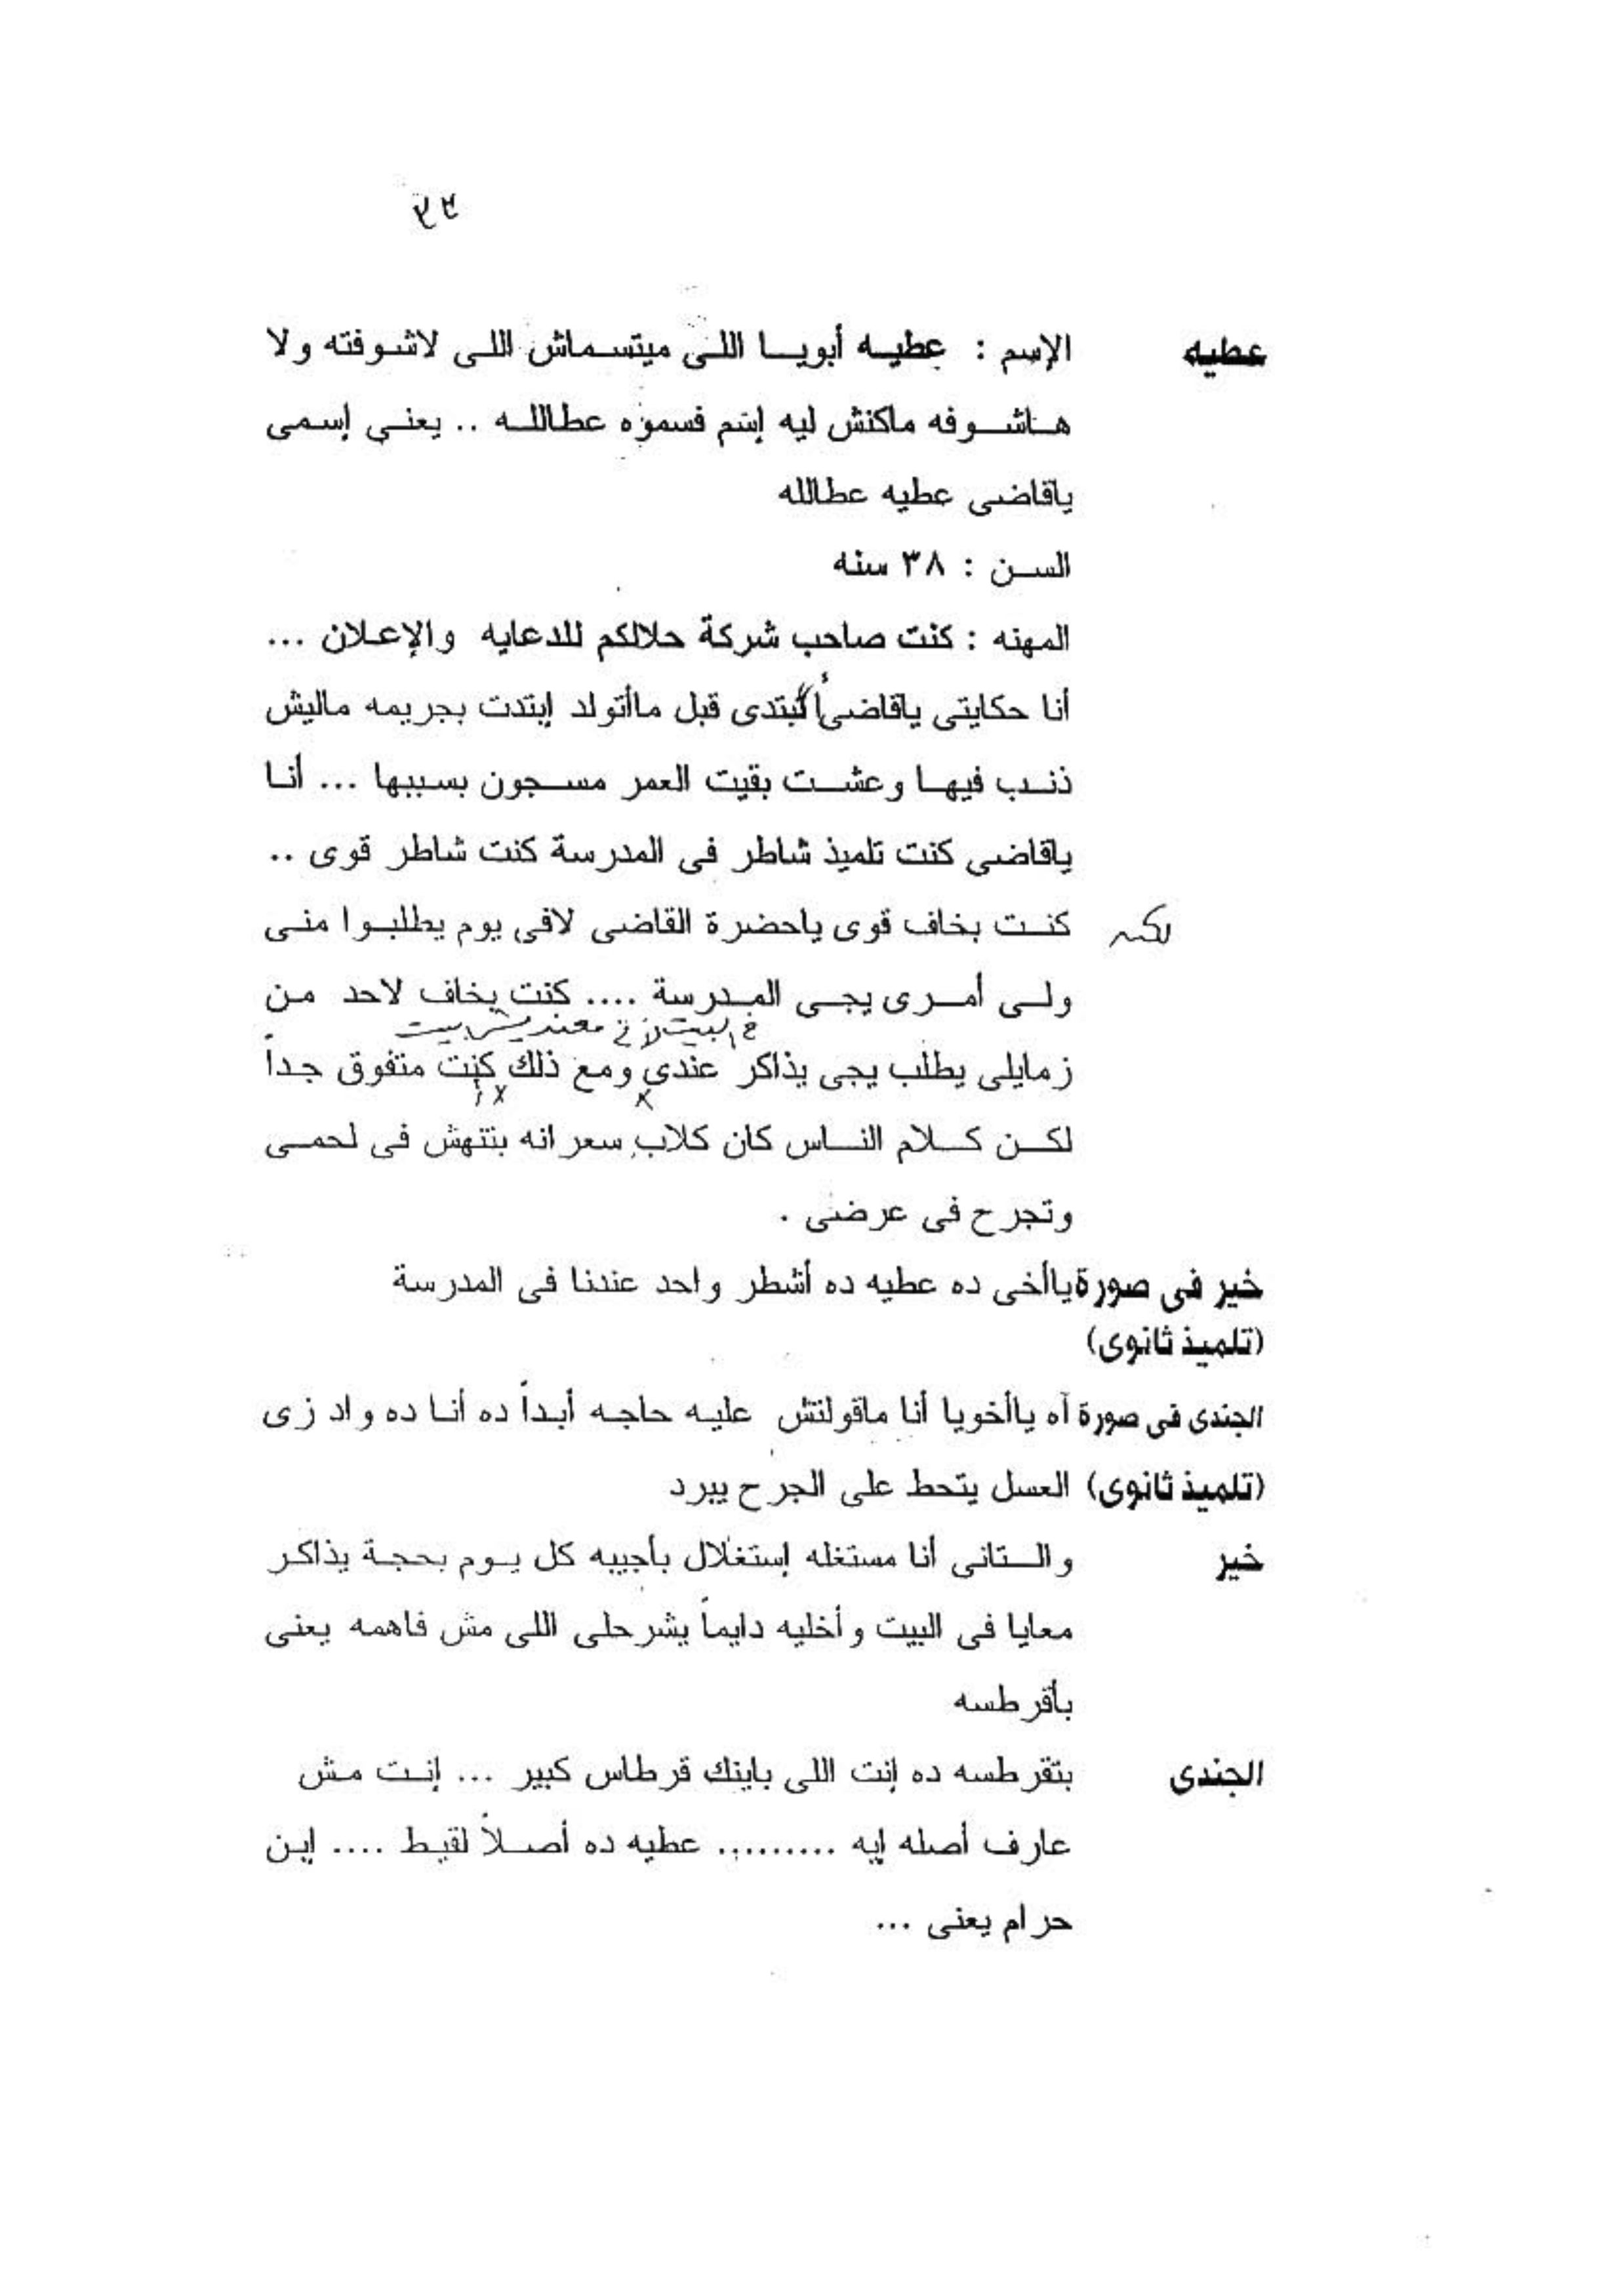 ٣٢
عطيه الإسم : عطيه أبويا اللى ميتسماش اللى لاشوفته ولا
هاشوفه ماكنش ليه إسم فسموه عطاالله .. يعنى إسمى
ياقاضى عطيه عطاالله
السن : ٣٨ سنه
المهنه : كنت صاحب شركة حلالكم للدعايه والإعلان ...
أنا حكايتى ياقاضى أبتدى قبل ماأتولد إبتدت بجريمه ماليش
ذنب فيها وعشت بقيت العمر مسجون بسببها ... أنا
ياقاضى كنت تلميذ شاطر فى المدرسة كنت شاطر قوى ..
لكن كنت بخاف قوى ياحضرة القاضى لافى يوم يطلبوا منى
ولى أمرى يجى المدرسة .... كنت بخاف لاحد من
فى البيت معنديش بيت
زمايلى يطلب يجى يذاكر عندى ومع ذلك كنت متفوق جداً
لكن كلام الناس كان كلاب سعرانه بتنهش فى لحمى
وتجرح فى عرضى .
خير فى صورة ياأخى ده عطيه ده أشطر واحد عندنا فى المدرسة
(تلميذ ثانوى)
الجندى فى صورة آه ياأخويا أنا ماقولتش عليه حاجه أبداً ده أنا ده واد زى
(تلميذ ثانوى) العسل يتحط على الجرح يبرد
خير والتانى أنا مستغله إستغلال بأجيبه كل يوم بحجة يذاكر
معايا فى البيت وأخليه دايماً يشرحلى اللى مش فاهمه يعنى
بأقرطسه
الجندى بتقرطسه ده إنت اللى باينك قرطاس كبير ... إنت مش
عارف أصله إيه ......... عطيه ده أصلاً لقيط .... إبن
حرام يعنى ...